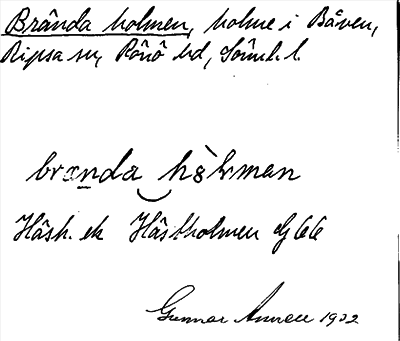 Brända holmen, holme i Båven,
Ripsa sn, Rönö hd, Sörml. l.
brænda hòlmən
Häsh. ek Hästholmen Gj 66
Gunnar Annell 1932